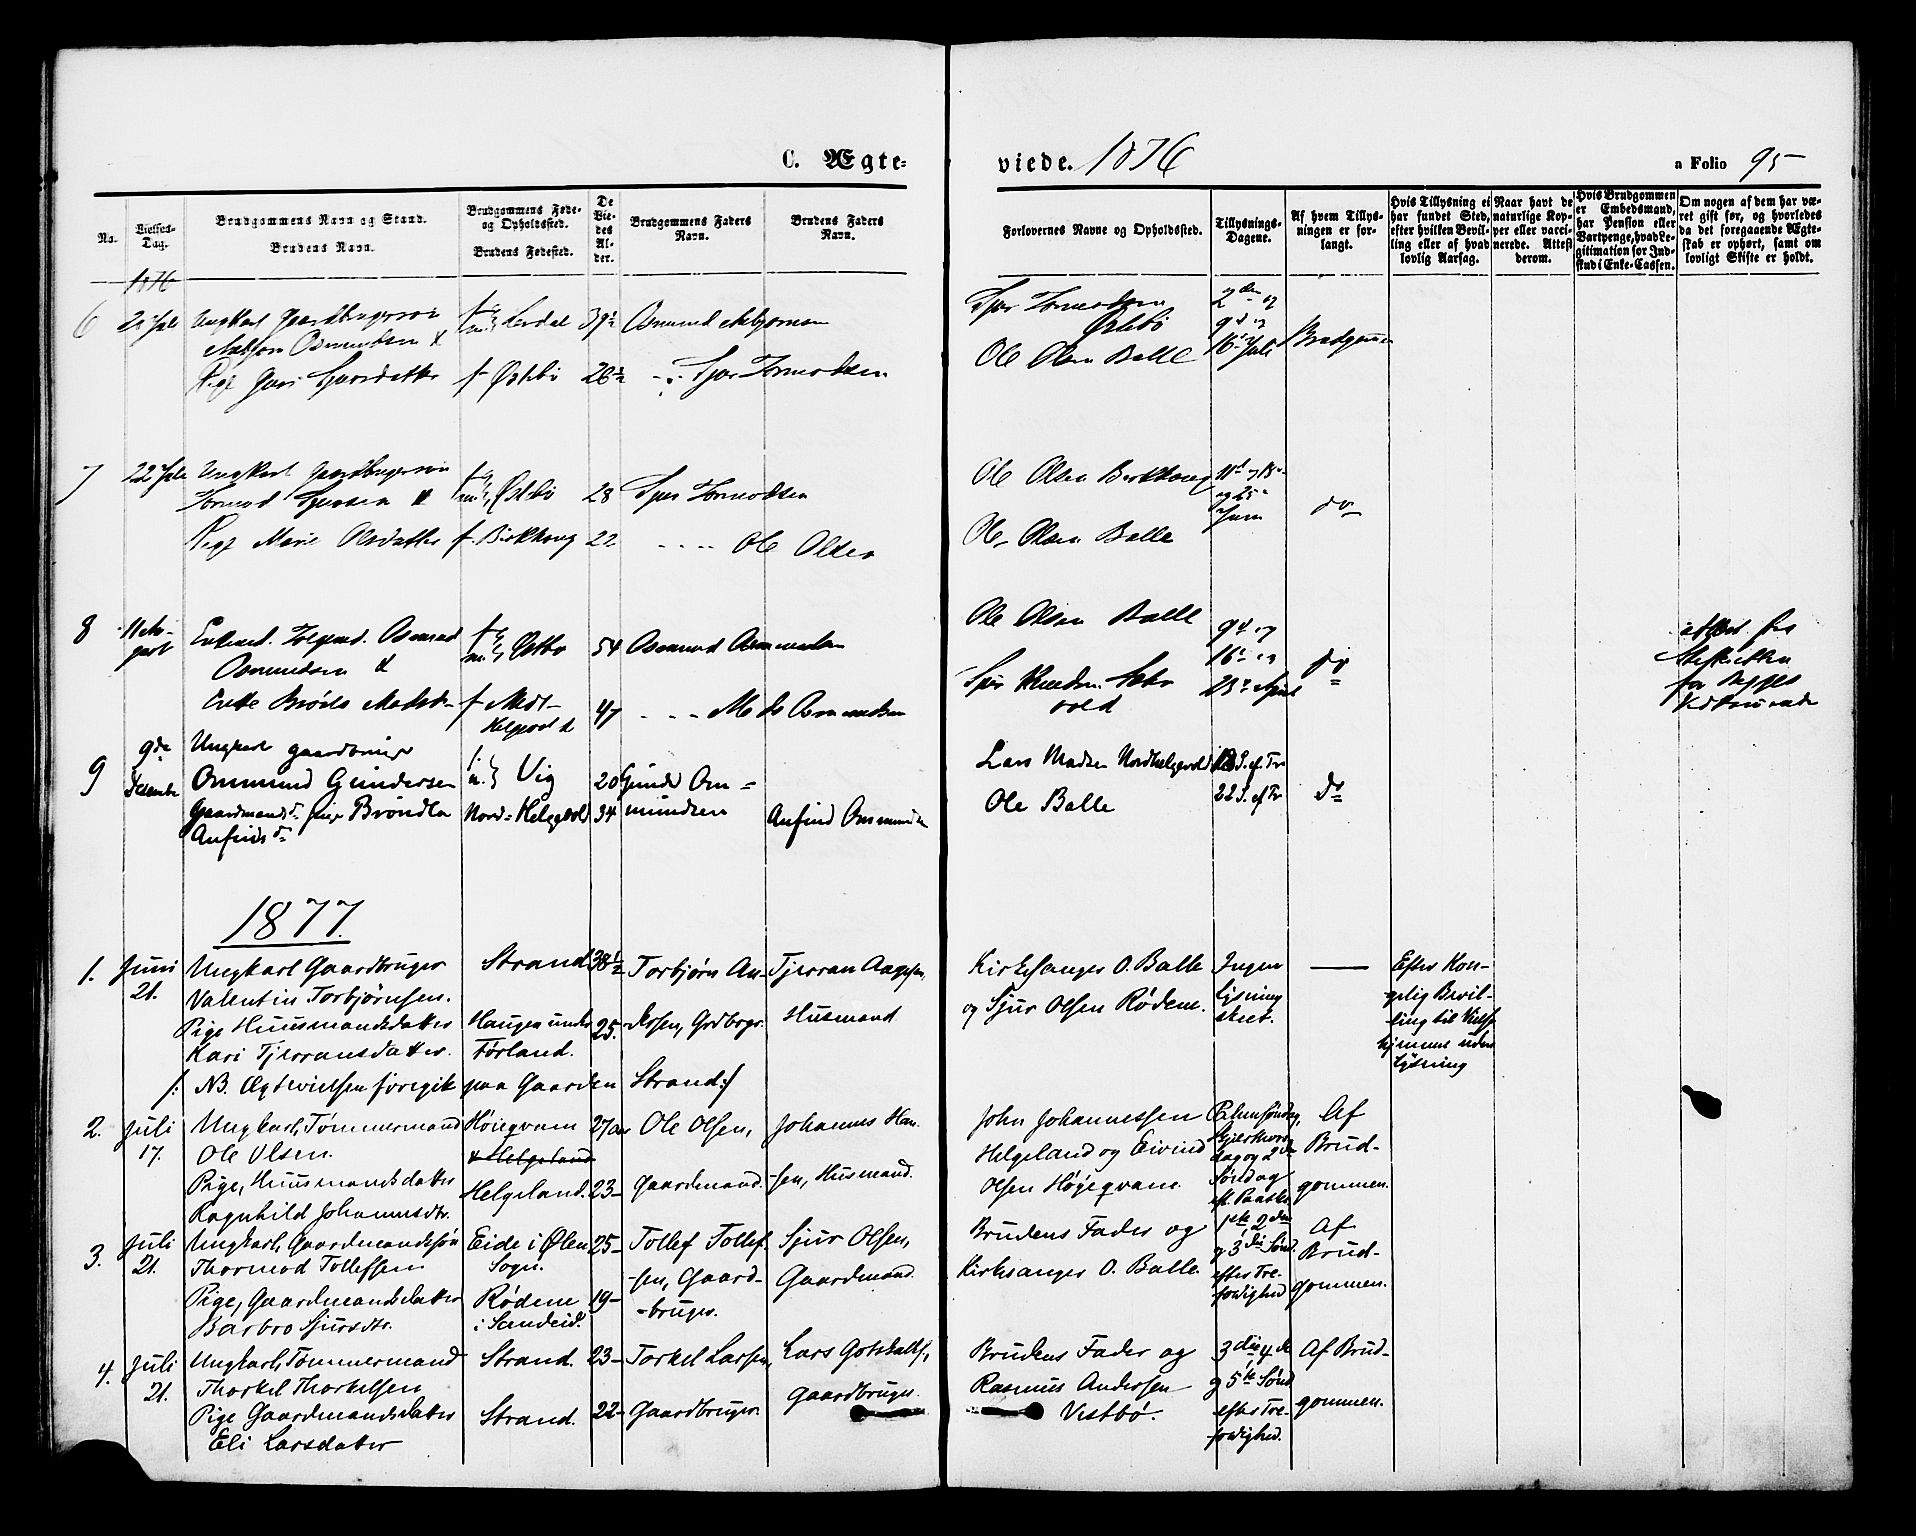 C. Ægte-
viede. 1876
a Folio 95
No.
Vielses-Dag.
Brudgommens Navn og Stand.
Brudens Navn.
Brudgommens Føde- og Opholdssted.
Brudens Fødested.
De Viedes Alder.
Brudgommens Faders Navn.
Brudens Faders Navn.
Forlovernes Navne og Opholdssted.
Tillysnings-Dagene.
Af hvem Tillysningen er forlangt.
Hvis Tillysning ei har fundet Sted, efter hvilken Bevilling eller af hvad lovlig Aarsag.
Naar havt de naturlige Kopper eller vaccinerede. Attest derom.
Hvis Brudgommen er Embedsmand, har Pension eller Vartpenge, hvad Legitimation for Indskud i Enke-Cassen.
Om nogen af dem har været gift før, og hvorledes da det foregaaende Ægteskab er ophørt, samt om lovligt Skifte er holdt.
1876
6
Ungkarl Gaardbrugersøn
Osmundsen &
Pige
f Østebø
Osmund Asbjørnsen
Sjur Tormodsen
Sjur Tormodsen
Østebø
Ole Olsen Balle
2den og
9d og
16d Juli
7
22 Juli
Ungkarl Gaardbrugersøn
Tormod Sjursen &
Pige Marie Olsdatter
Østebø
f. Birkhoug
28
22
Sjur Tormodsen
Ole Olsen
Ole Olsen Birkhoug
Ole Olsen Balle
11d 18d
og 25d
Juni
do
8
Osmund
Osmundsen &
f
54
47
Osmund Osmundsen
Mads Osmundsen
Ole Olsen Balle
9d og
16d og
do
9
9de
Ungkarl gaardbruger
Ommund Gundersen
Gaardmandsdr pige Brøndla
Anfindsdr
Vig
Nord-Helgevold
20
34
Gunder Om-
mundsen
Anfind Ommundsen
Lars Madsen Nordhelgevold
Ole Balle
22 S. ef Tr
do
1877.
1.
Juni
21.
Ungkarl Gaardbruger
Valentin Torbjørnsen.
Pige Huusmandsdatter
Kari Tjerransdatter.
Strand
Haugen under
Førland.
38½
25.
Torbjørn An-
dersen, Grdbrgr.
Tjerran Aagesen,
Husmand
Kirkesanger O. Balle
og Sjur Olsen Rødne.
Ingen
lysning
skeet.
Efter Kon-
gelig Bevil-
ling til Vielse
hjemme uden
Lysning
/: NB. Ægtevielsen foregik paa Gaarden Strand :/
2.
Juli
17.
Ungkarl, Tømmermand
Ole Olsen.
Pige, Huusmandsdatter
Ragnhild Johannesdtr.
Høiegvam
Helgeland
Helgeland.
27 aar
23-
Ole Olsen,
Gaardmand.
Johannes Han-
sen, Husmand.
John Johannessen
Helgeland og Eivind
Olsen Høyegvam.
Palmesøndag,
Skjærthors-
dag og 2den
Søndag
eft. Paaske
Af
Brud-
gommen.
3.
Juli
21.
Ungkarl, Gaardmandssøn
Thormod Tollefsen
Pige, Gaardmandsdatter
Barbro Sjursdtr.
Eide i Ølen
Sogn.
Rødne
i Sandeid.
25-
19-
Tollef Tollef-
sen, Gaard-
bruger.
Sjur Olsen,
Gaardmand.
Brudens Fader og
Kirkesanger O. Balle.
1ste 2den
og 3die Sønd.
efter Tre-
foldighed
Af
Brud-
gommen.
4.
Juli
21.
Ungkarl, Tømmermand
Thorkel Thorkelsen
Pige Gaardmandsdatter
Eli Larsdatter
Strand.
Strand.
23-
22-
Torkel Larsen,
Gaardbruger.
Lars Gotskalks.,
Gaardbruger.
Brudens Fader og
Rasmus Andersen
Vestbø.
3die 4de
og 5te Sønd
efter Tre-
foldighed.
Af Brud-
gommen.